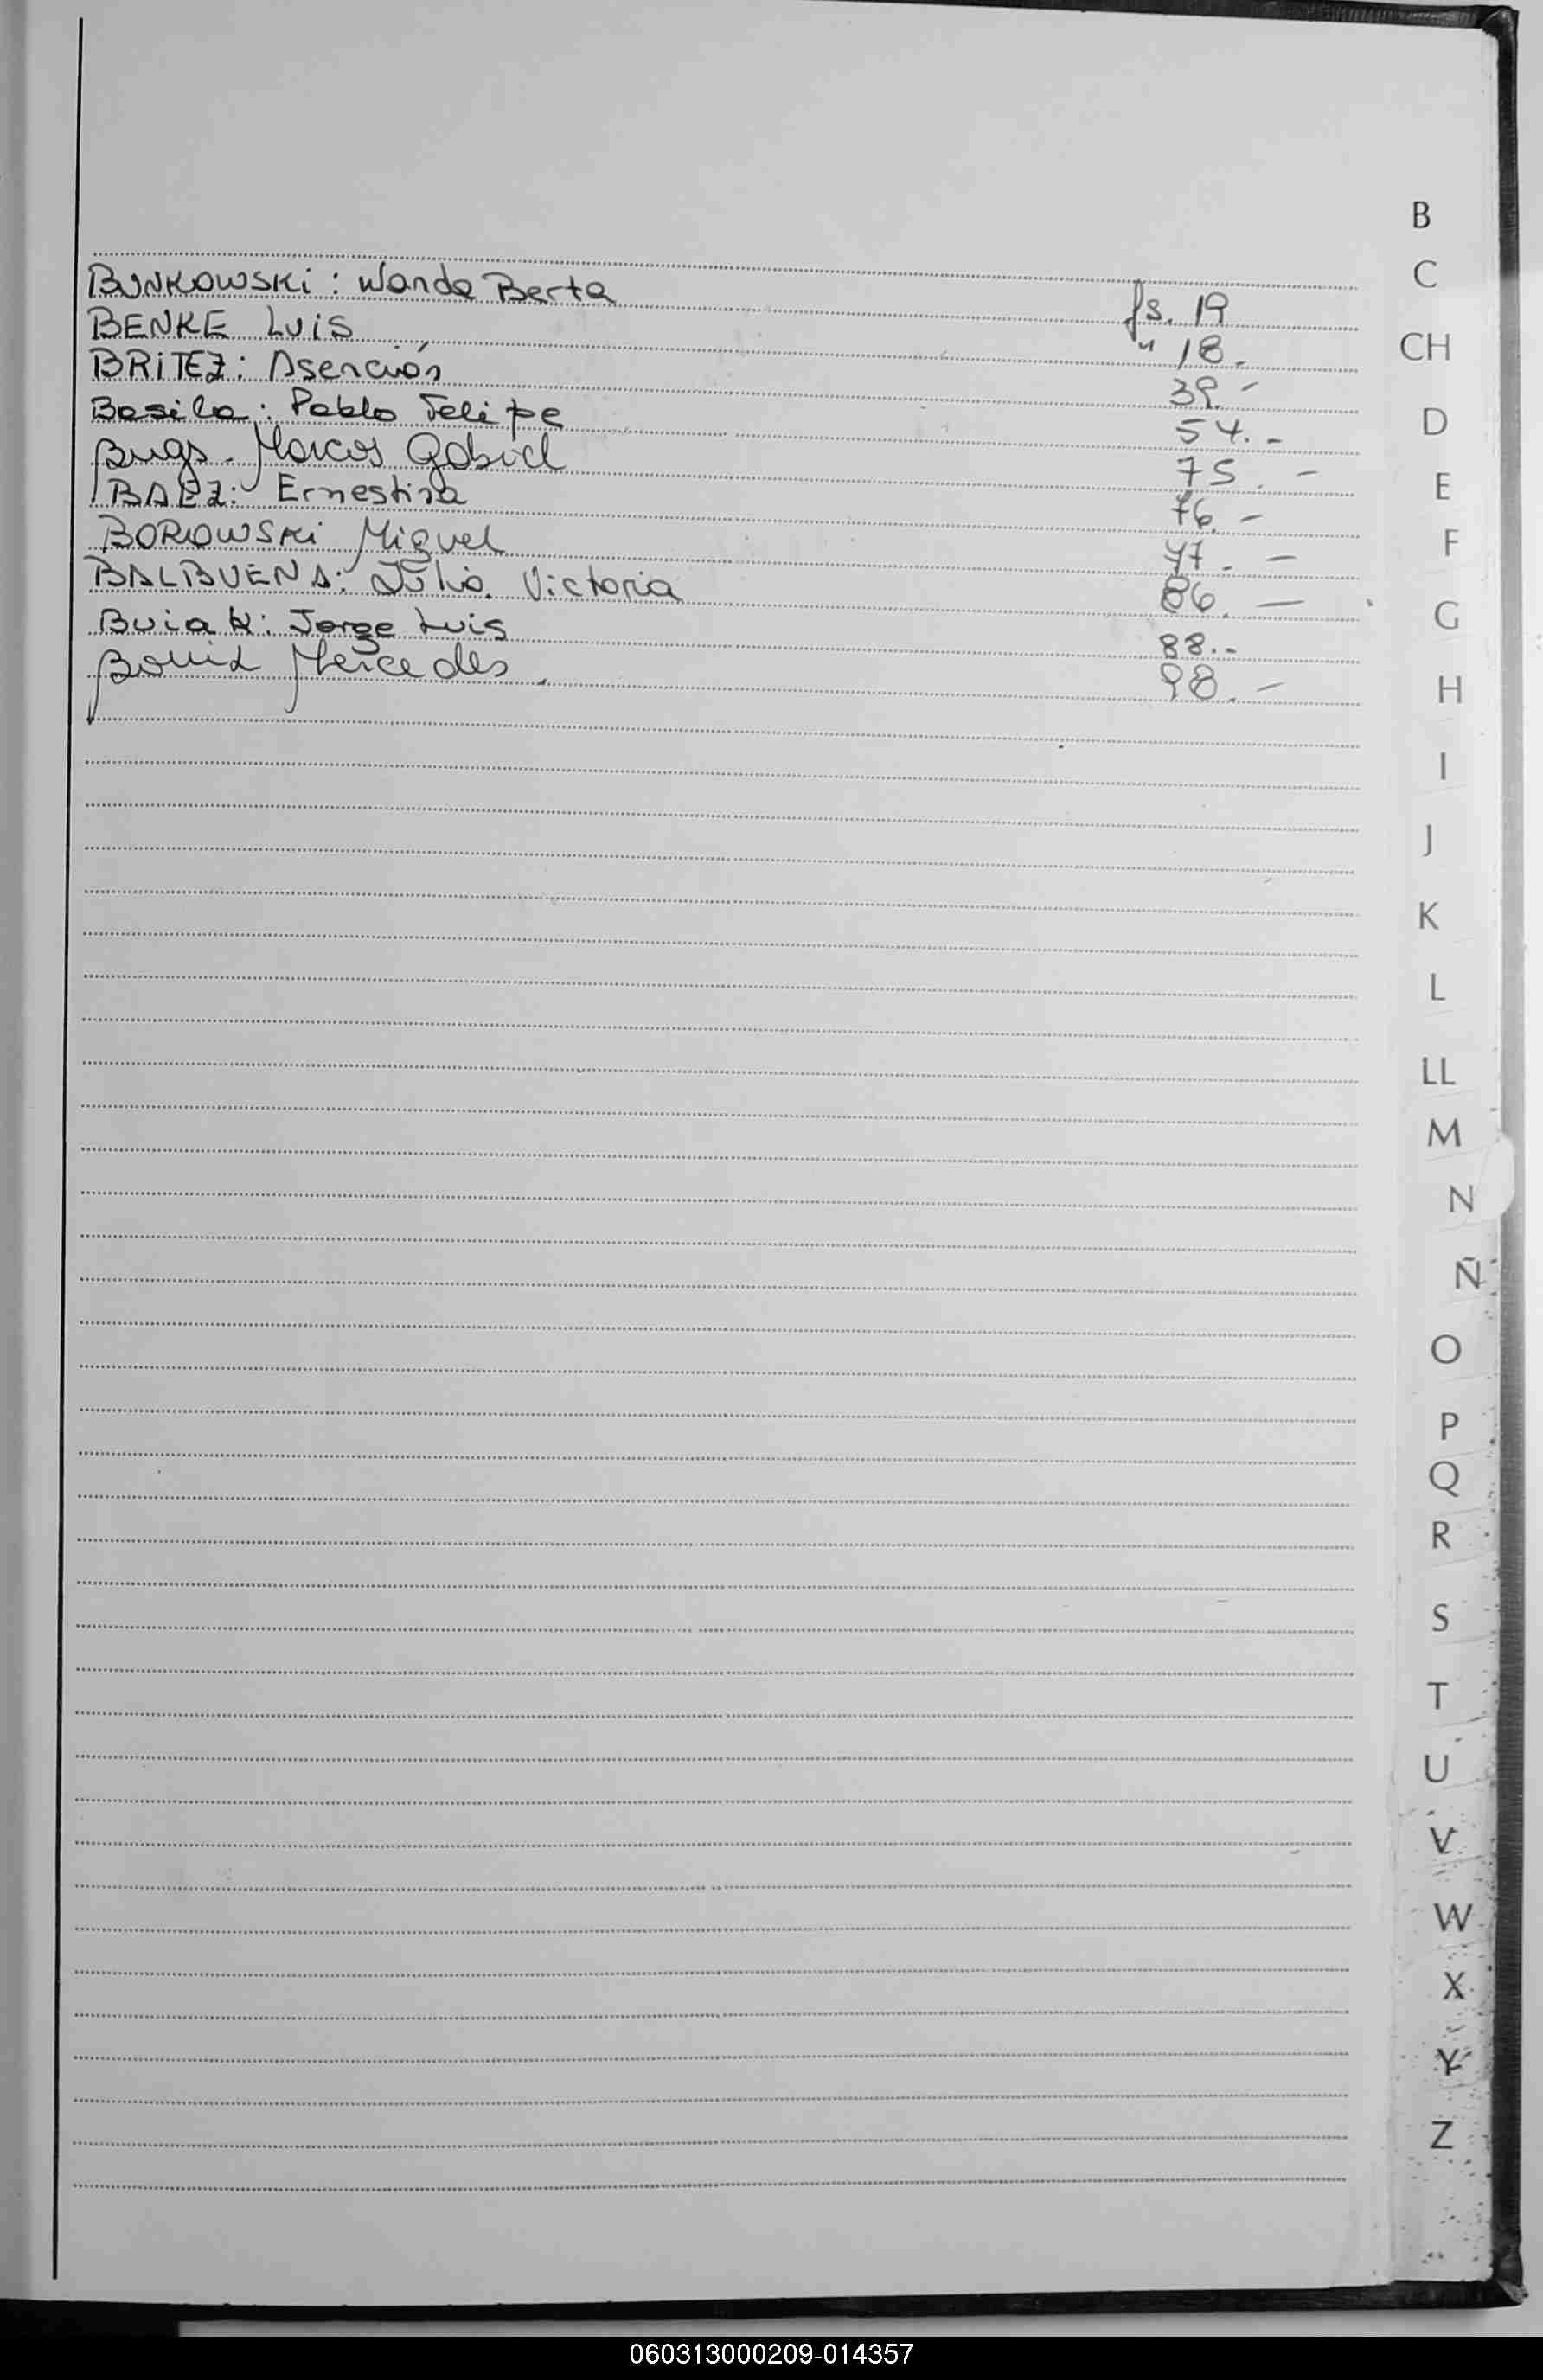 B
C
BUNKOWSKi : Wanda Berta fs. 19
BENKE LUiS " 18.
CH
BRiTEZ: Asención 39.-
Basilo: Pablo Felipe 54.-
D
Bugs. Marcos Gabriel 75.-
E
BAEZ: Ernestina 76.-
BOROWSKi Miguel 47.-
F
BALBUENA: Julia Victoria 86.-
G
Buiak: Jorge Luis 88.-
Mercedes. 98.-
H
I
J
K
L
LL
M
N
Ñ
O
P
Q
R
S
T
U
V
W
X
Y
Z
060313000209-014357